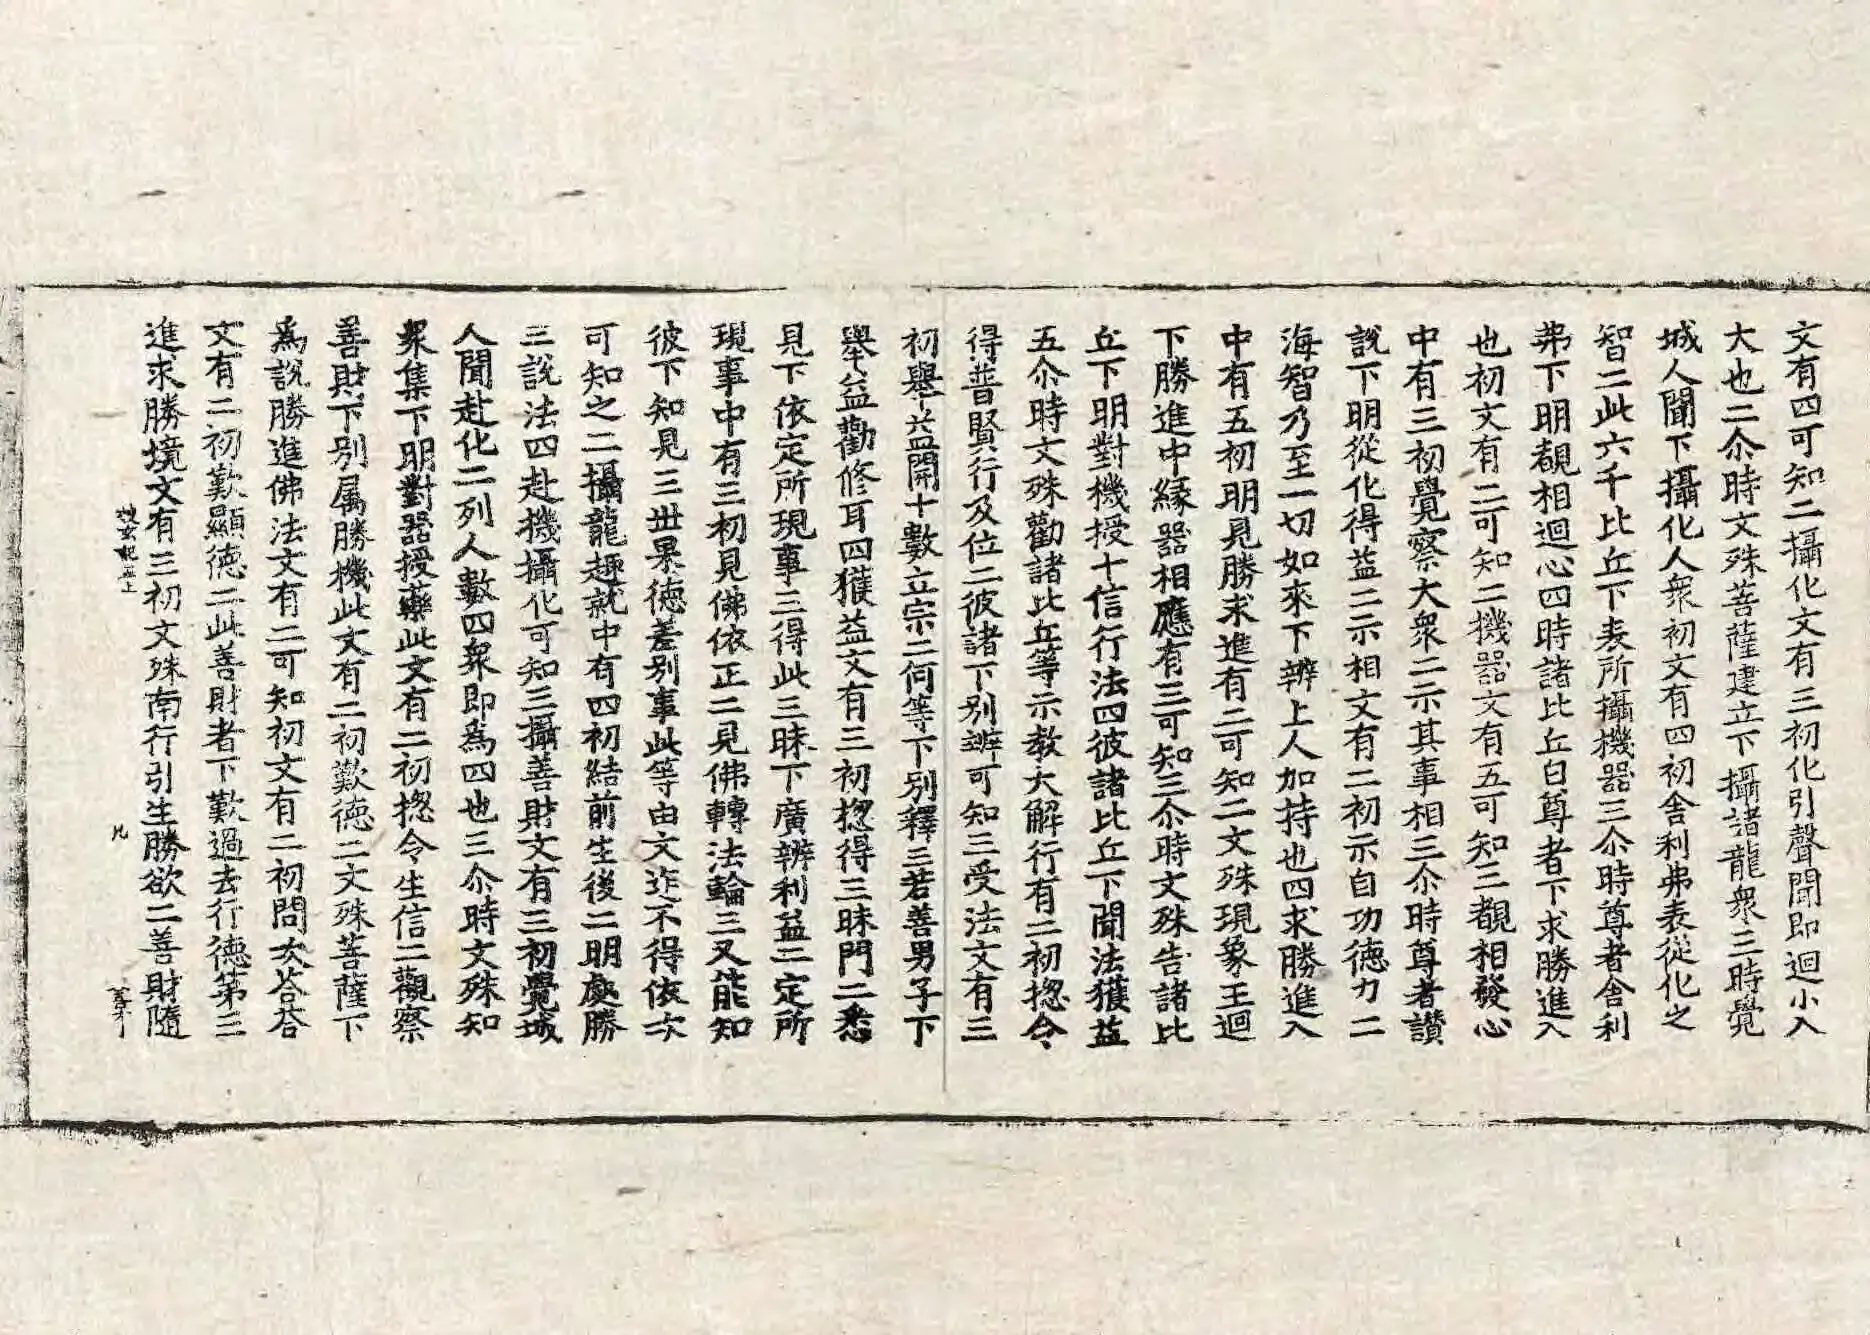 文有四可知二攝化文有三初化引聲聞即迴小入
大也二尒時文殊菩薩建立下攝諸龍衆三時覺
城人聞下攝化人衆初文有四初舍利弗表從化之
智二此六千比丘下表所攝機器三尒時尊者舍利
弗下明覩相迴心四時諸比丘白尊者下求勝進入
也初文有二可知二機器文有五可知三覩相發心
中有三初覺察大衆二示其事相三尒時尊者讃
說下明從化得益二示相文有二初示自功德力二
海智乃至一切如來下辨上人加持也四求勝進入
中有五初明見勝求進有二可知二文殊現象王迴
下勝進中縁器相應有三可知三尒時文殊告諸比
丘下明對機授十信行法四彼諸比丘下聞法獲益
五尒時文殊勸諸比丘等示教大解行有二初揔令
得普賢行及位二彼諸下别辨可知三受法文有三
初舉益開十數立宗二何等下别釋三若善男子下
舉益勸修耳四獲益文有三初揔得三昧門二悉
見下依定所現事三得此三昧下廣辨利益二定所
現事中有三初見佛依正二見佛轉法輪三又能知
彼下知見三世果德差别事此等由文迮不得依次
可知之二攝龍趣就中有四初結前生後二明處勝
三說法四赴機攝化可知三攝善財文有三初覺城
人聞赴化二列人數四衆即為四也三尒時文殊知
衆集下明對器授藥此文有二初揔令生信二觀察
善財下别属勝機此文有二初歎德二文殊菩薩下
為說勝進佛法文有二可知初文有二初問次荅荅
文有二初歎顯德二此善財者下歎過去行德第三
進求勝境文有三初文殊南行引生勝欲二善財隨
搜玄記五上
九